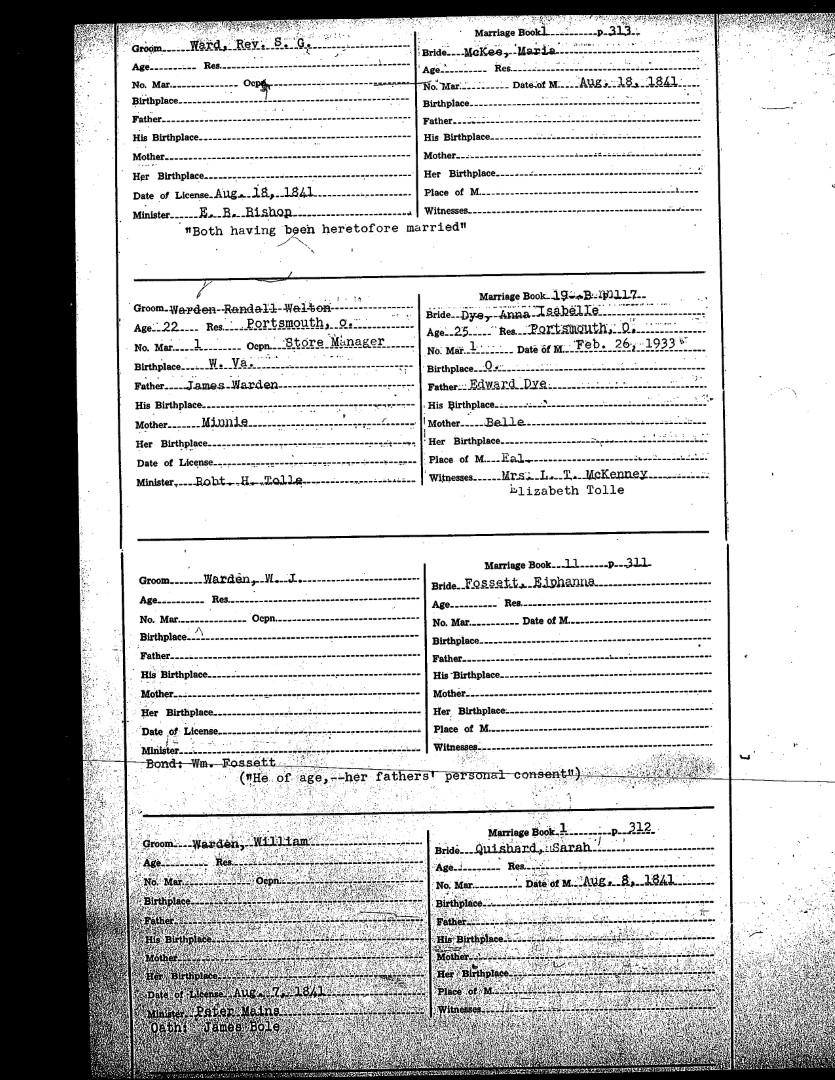 Marriage Book 1 p. 313
Groom Ward, Rev. S. G.
Bride McKee, Maria
Age Res.
Age Res.
No. Mar. Ocpn.
No. Mar. Date of M. Aug. 18, 1841
Birthplace
Birthplace
Father
Father
His Birthplace
His Birthplace
Mother
Mother
Her Birthplace
Her Birthplace
Date of License Aug. 18, 1841
Place of M.
Minister E. B. Bishop
Witnesses
"Both having been heretofore married"
Marriage Book 19 B p 117
Groom Warden Randall Walton
Bride Dye, Anna Isabelle
Age 22 Res. Portsmouth, O.
Age 25 Res. Portsmouth, O.
No. Mar. 1 Ocpn. Store Manager
No. Mar. 1 Date of M. Feb. 26, 1933
Birthplace W. Va.
Birthplace O.
Father James Warden
Father Edward Dye
His Birthplace
His Birthplace
Mother Minnie
Mother Belle
Her Birthplace
Her Birthplace
Date of License
Place of M. Eal
Minister Robt. H. Tolle
Witnesses Mrs. L. T. McKenney
Elizabeth Tolle
Marriage Book 11 p. 311
Groom Warden, W. J.
Bride Fossett, Eiphanna
Age Res.
Age Res.
No. Mar. Ocpn.
No. Mar. Date of M.
Birthplace
Birthplace
Father
Father
His Birthplace
His Birthplace
Mother
Mother
Her Birthplace
Her Birthplace
Date of License
Place of M.
Minister
Witnesses
Bond: Wm. Fossett
("He of age,--her fathers' personal consent")
Marriage Book 1 p. 312
Groom Warden, William
Bride Quishard, Sarah
Age Res.
Age Res.
No. Mar. Ocpn.
No. Mar. Date of M. Aug. 8, 1841
Birthplace
Birthplace
Father
Father
His Birthplace
His Birthplace
Mother
Mother
Her Birthplace
Her Birthplace
Date of License Aug. 7, 1841
Place of M.
Minister Peter Mains
Witnesses
Oath: James Bole